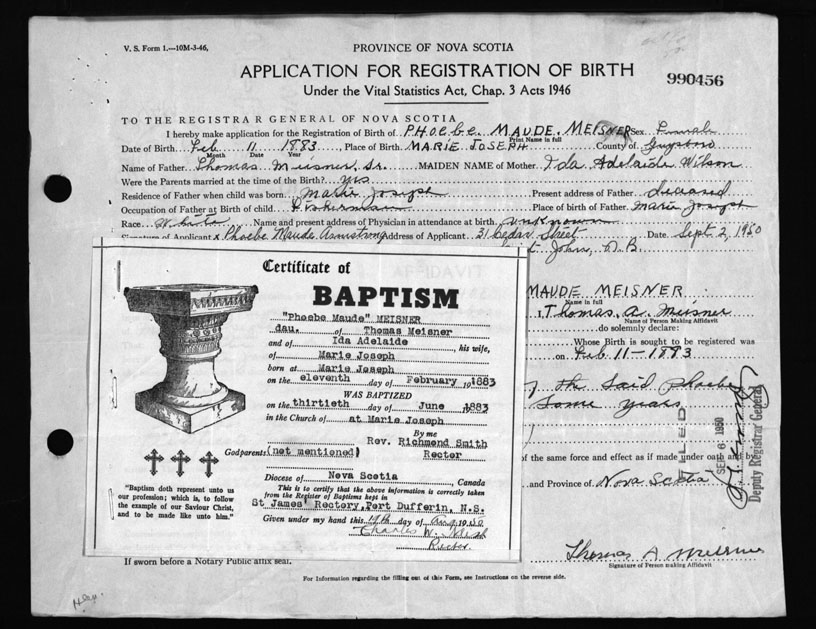 V. S. Form 1.—10M-3-46,
PROVINCE OF NOVA SCOTIA
APPLICATION FOR REGISTRATION OF BIRTH
990456
Under the Vital Statistics Act, Chap. 3 Acts 1946
TO THE REGISTRAR GENERAL OF NOVA SCOTIA
I hereby make application for the Registration of Birth of PHOEBE MAUDE. MEISNER Sex Female
Print Name in full
Date of Birth Feb 11 1883 Place of Birth MARIE JOSEPH County of Guysboro
Month Date Year
Name of Father Thomas Meisner, Sr. MAIDEN NAME of Mother Ida Adelaide Wilson
Were the Parents married at the time of Birth? yes
Residence of Father when child was born Marie Joseph Present address of Father deceased
Occupation of Father at Birth of child Fisherman Place of birth of Father Marie Joseph
Race White Name and present address of Physician in attendance at birth unknown
Signature of Applicant x Phoebe Maude Armstrong Address of Applicant 31 Cedar Street Date Sept 2, 1950
Saint John, N.B.
AFFIDAVIT
Certificate of
BAPTISM
"Phoebe Maude" MEISNER
dau. of Thomas Meisner
and of Ida Adelaide his wife,
of Marie Joseph
born at Marie Joseph
on the eleventh day of February 1883
WAS BAPTIZED
on the thirtieth day of June 1883
in the Church of at Marie Joseph
By me
Rev. Richmond Smith
Godparents: (not mentioned) Rector
Diocese of Nova Scotia, Canada
This is to certify that the above information is correctly taken
from the Register of Baptisms kept in
St James' Rectory, Port Dufferin, N.S.
Given under my hand this day of Aug 1950
Charles W.
Rector
"Baptism doth represent unto us
our profession; which is, to follow
the example of our Saviour Christ,
and to be made like unto him."
MAUDE MEISNER
Name in full
I, Thomas. A. Meisner
Name of Person Making Affidavit
do solemnly declare:
Whose Birth is sought to be registered was
on Feb 11-1883
the said Phoebe
some years
of the same force and effect as if made under oath and by
and Province of Nova Scotia
FILED
SEP 6 1950
Deputy Registrar General
Thomas A Meisner
Signature of Person making Affidavit
If sworn before a Notary Public affix seal.
For Information regarding the filling out of this Form, see Instructions on the reverse side.